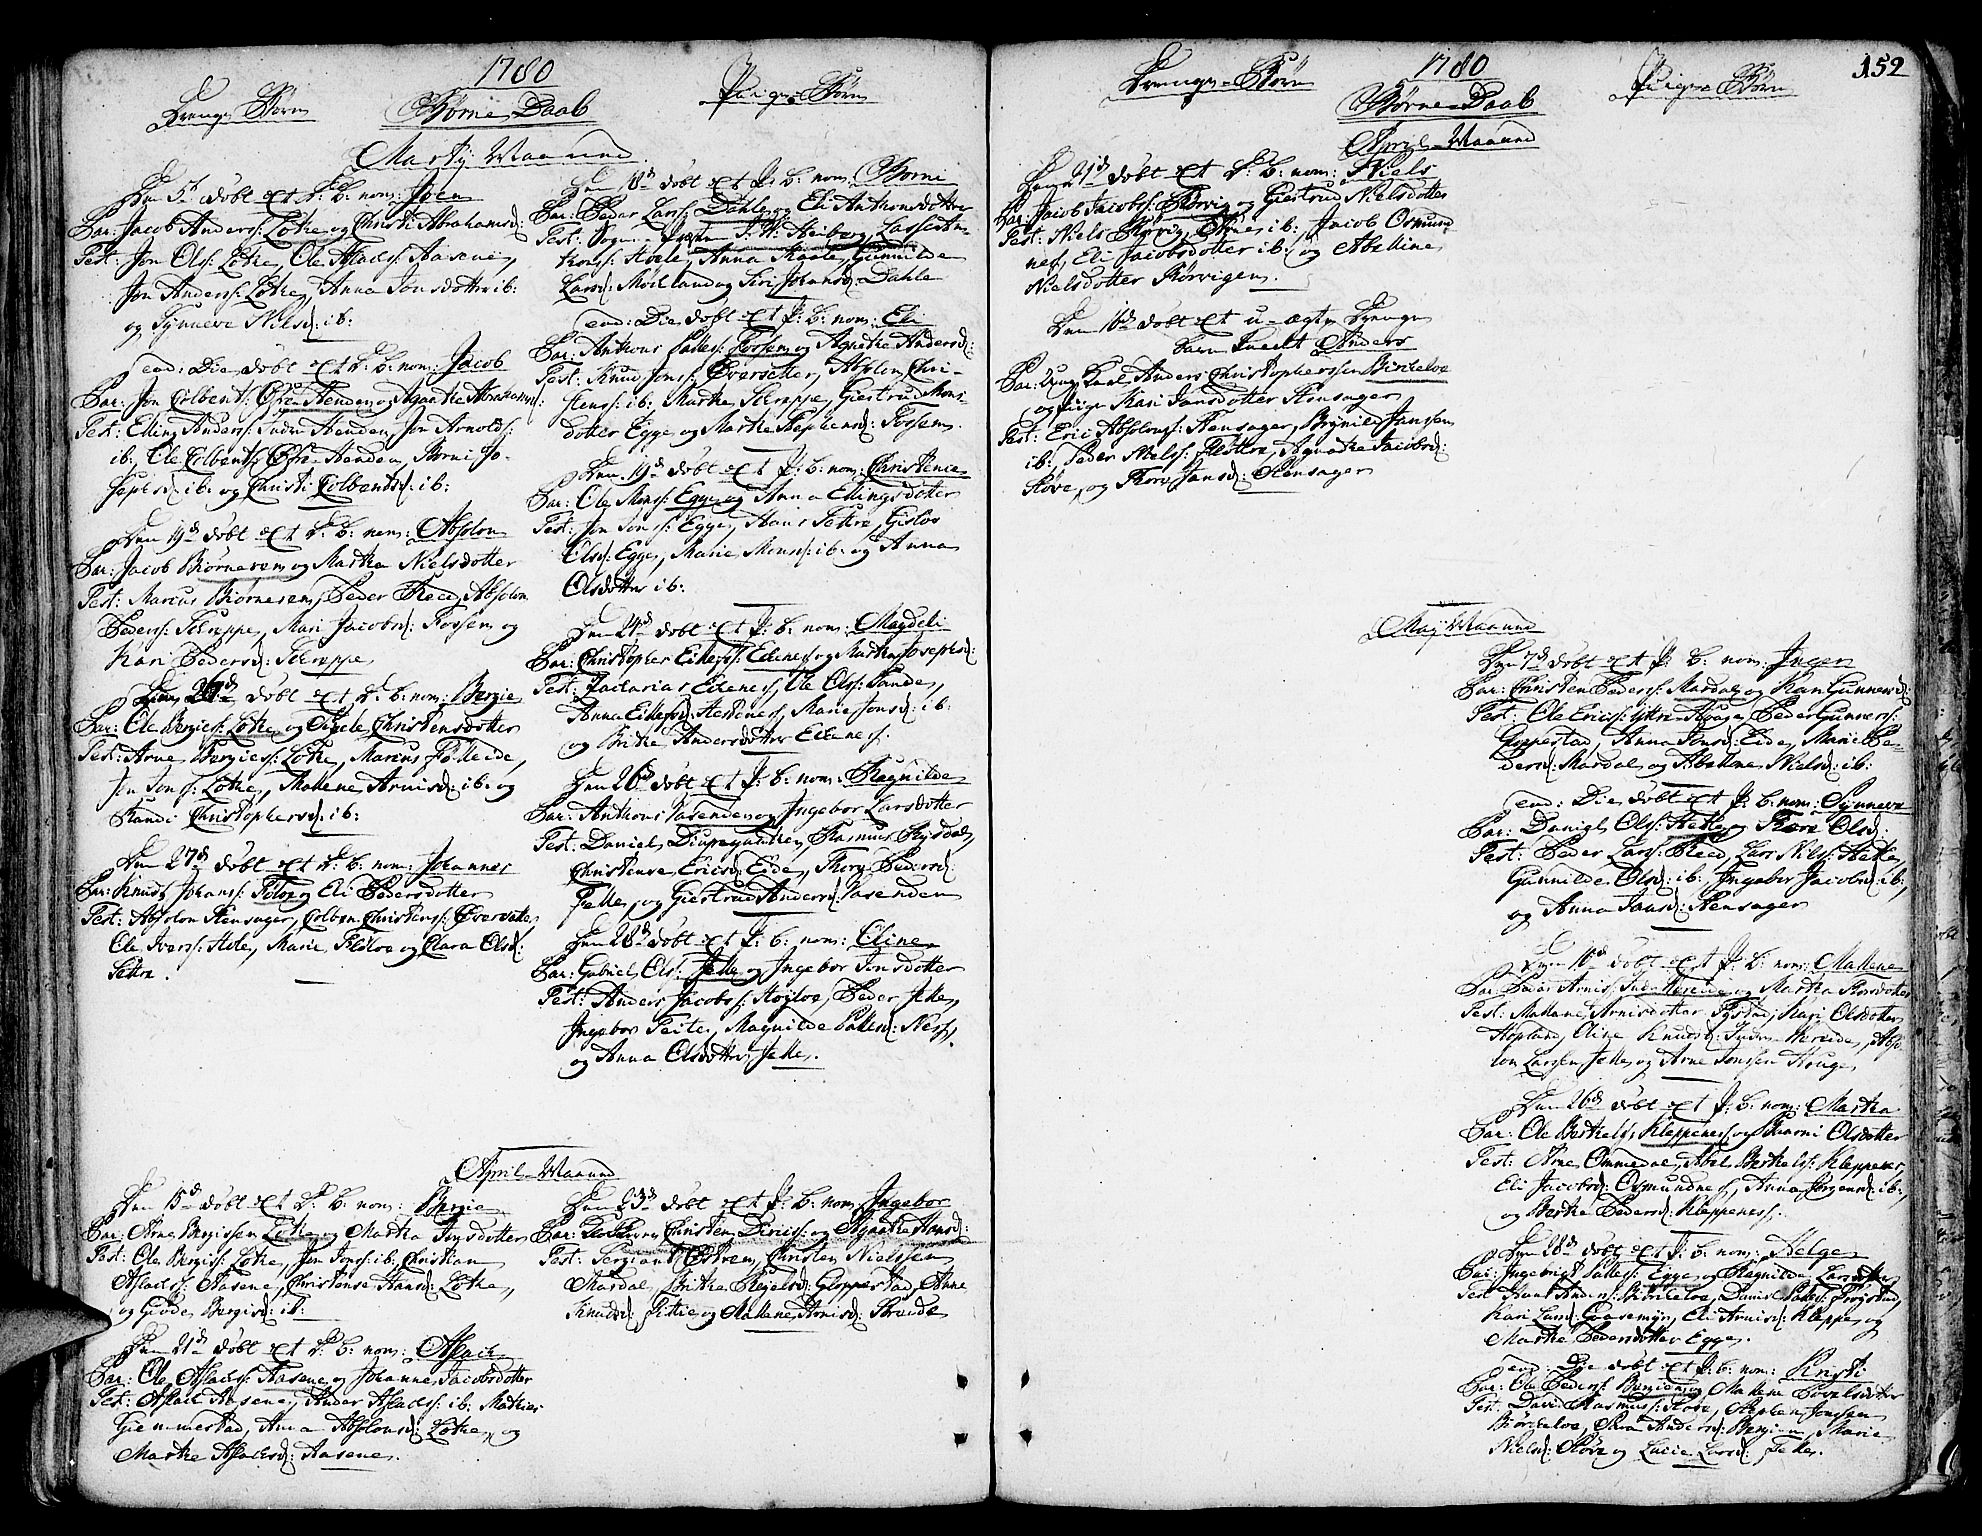 1780
Drenge Børn
Børne Daab
Piige Børn
Martij Maaned
Den 5t døbt et D: B: nom: Joen
Par: Jacob Anders: Lothe og Christi Abrahamsd:
Test: Jon Ols: Lothe, Ole Aslachs: Aasene,
Jon Anders: Lothe, Anna Jonsdotter ib:
og Synneve Nielsd: ib:
eod: Die døbt et D: B: nom: Jacob
Par: Jon Colbent: Øfre Henden og Agnethe Abrahamsd:
Test: Elling Anders: Indre Henden, Jon Arnolds:
ib:, Ole Colbents: Øfre Henden, Børni Jo-
sephsd: ib: og Christi Colbentsd: ib:
Den 19d døbt et D: B: nom: Absolon
Par: Jacob Biørnerem og Martha Nielsdotter
Test: Marcus Biørnerem, Peder Reed, Absolon
Peders: Skreppe, Mari Jacobsd: Fossem og
Kari Pedersd: Skreppe
Den 26d døbt et D: B: nom: Bergie
Par: Ole Bergies: Lothe og Sigele Christensdotter
Test: Arne Bergies: Lothe, Marcus Følleide,
Jon Jons: Lothe, Malene Arnisd: ib: og
Randi Christophersd: ib:
Den 27d døbt et D: B: nom: Johannes
Par: Knud Johans: og Eli Pedersdotter
Test: Absolon Hensager, Colben Christens: Eversette,
Ole Ivers: Hole, Marie Fløtre og Clara Olsd:
Sættre.
Den 18d døbt et P: B: nom: Børni
Par: Peder Lars: Dahle og Eli Anthonsdotter
Test: Sogne Præsten G: H: Heiberg, Lasse An-
thons: Hoele, Anna Kaale, Gunnilde
Larsd: Moldand og Siri Johansd: Dahle
eod: Die døbt et P: B: nom: Eli
Par: Anthons Salles: Fossem og Agnethe Andersd:
Test: Knud Jons: Eversetter, Absolon Chri-
stens: ib:, Marthe Skreppe, Giertrud Mons-
dotter Egge og Marthe Stephensd: Fossem.
Den 19d døbt et P: B: nom: Christense
Par: Ole Mons: Egge og Anna Ellingsdotter
Test: Jon Jons: Egge, Hans Sættre, Gislov
Olsd: Egge, Marie Monsd: ib: og Anna
Olsdotter ib:
Den 24d døbt et P: B: nom: Magdeli
Par: Christopher Eilefs: Eidenes og Martha Josephsd:
Test: Zacharias Eidenes, Ole Ols: Sande,
Anna Eilefsd: Hestenes, Marie Jonsd: ib:
og Brithe Andersdotter Eidenes.
Den 26d døbt et P: B: nom: Ragnilde
Par: Anthons Vasenden og Ingebor Larsdotter
Test: Daniel Diupegunden, Rasmus Rysdal,
Christense Ericsd: Eide, Thore Pedersd:
Felle, og Giertrud Andersd: Vasenden
Den 28d døbt et P: B: nom: Eline
Par: Gabriel Ols: Felle og Ingebor Jonsdotter
Test: Anders Jacobs: Høyloe, Peder Felle,
Ingebor Teite, Magnilde Sallesd: Ness,
og Anna Olsdotter Felle.
April Maaned
Den 15d døbt et D: B: nom: Bergie
Par: Arne Bergissen Lothe og Martha Jonsdotter
Test: Ole Bergis: Lothe, Jon Jons: ib: Christian
Aslachs: Aasene, Christense Hansd: Lothe,
og Gunde Bergisd: ib:
Den 21d døbt et D: B: nom: Aslach
Par: Ole Aslachs: Aasene og Johanne Jacobsdotter
Test: Aslach Aasene, Ander Aslachs: ib: Mathias
Giemmestad, Anna Absolonsd: Lothe, og
Marthe Aslachsd: Aasene.
Den 23d døbt et P: B: nom: Ingebor
Par: Christen Dirics: og Agnethe Hansd:
Test: Sergiant Østrem, Christen Nielssen
Mardal, Brithe Reielsd: Gloppestad, Anne
Knudsd: Fithie og Malene Arnisd: Strande
1780
152
Drenge Børn
Børne Daab
Piige Børn
April Maaned
Den 21d døbt et D: B: nom: Niels
Par: Jacob Jacobs: Rørvig og Giertrud Nielsdotter
Test: Niels Rørvig, Arne ib: Jacob Osmund-
nes, Eli Jacobsdotter ib: og Abelline
Nielsdotter Rørvigen.
Den 16d døbt et u-ægte Drenge
barn kaldt Anders
Par: Unge Karl Anders Christopherssen Birkeloe
og Pige Kari Jansdotter Hensager
Test: Eric Absolons: Hensager, Brynild Janssen
ib: Peder Niels: Fløttre, Agnethe Jacobsd:
Støve, og Thore Jansd: Hensager
Maj Maaned
Den 7d døbt et P: B: nom: Inger
Par: Christen Peders: Mardal og Kari Gunnersd:
Test: Ole Erics: Yttre Hauge, Peder Gunners:
Gloppestad, Anna Jonsd: Eide, Marie Pe-
dersd: Mardal og Abelline Nielsd: ib:
eod: Die døbt et P: B: nom: Synneve
Par: Daniel Ols: Hetle og Thore Olsd:
Test: Peder Lars: Reed, Lars Niels: Hetle,
Gunnilde Olsd: ib:, Ingebor Jacobsd: ib:,
og Anna Jansd: Hensager
Den 18d døbt et P: B: nom: Malene
Par: Peder Arnis: Indre Hereide og Martha Larsdotter
Test: Malene Arnisdotter Rysdal, Kari Olsdotter
Hopland, Eline Knudsd: Indre Hereide, Abso-
lon Larssen Felle og Arne Jonssen Houge
Den 26d døbt et P: B: nom: Martha
Par: Ole Berthels: Kleppenes og Barni Olsdotter
Test: Arne Ommedal, Abel Berthels: Kleppenes,
Eli Jacobsd: Osmundnes, Anna Jørgensd: ib:,
og Berthe Pedersd: Kleppenes.
Den 28d døbt et P: B: nom: Helge
Par: Ingebrigt Salles: Egge og Ragnilde Larsdotter
Test: Knud Anders: Birkeloe, Daniel Salles: Frøystad,
Kari Larsd: Gaasemyr, Eli Arnisd: Kleppe, og
Marthe Pedersdotter Egge.
eod: Die døbt et P: B: nom: Kristi
Par: Ole Peders: Bergem og Malene Povelsdotter
Test: David Rasmuss: Støve, Stephen Jonssen
Biørkeloe, Sara Andersd: Bergem, Marie
Nielsd: Støve og Lucie Larsd: Felle.